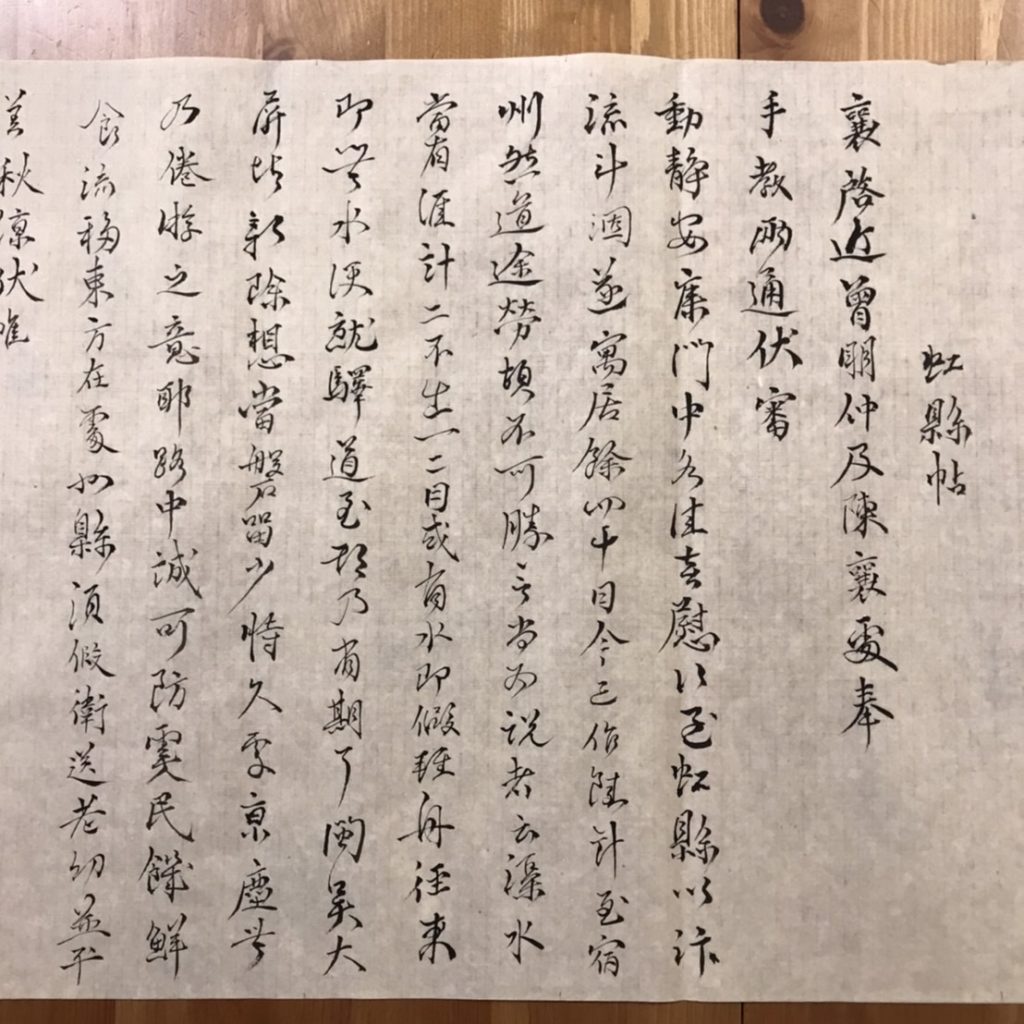 虹縣帖
襄啓近曾明仲及陳襄處奉
手教兩通伏審
動靜安康門中各佳喜慰次至虹縣以汴
流斗涸遂寓居餘四十日今已作陸計至宿
州然道途勞頓不可勝言尚為說者云渠水
當有涯計二不出一二日或有水即假輕舟徑來
即無水便就驛道至都乃有期耳閩吳大
屏皆新除想當磐留少時久處京塵無
乃倦游之意耶路中誠可防虞民饑鮮
食流移東方在處州縣須假衛送老幼並平
善秋涼伏惟